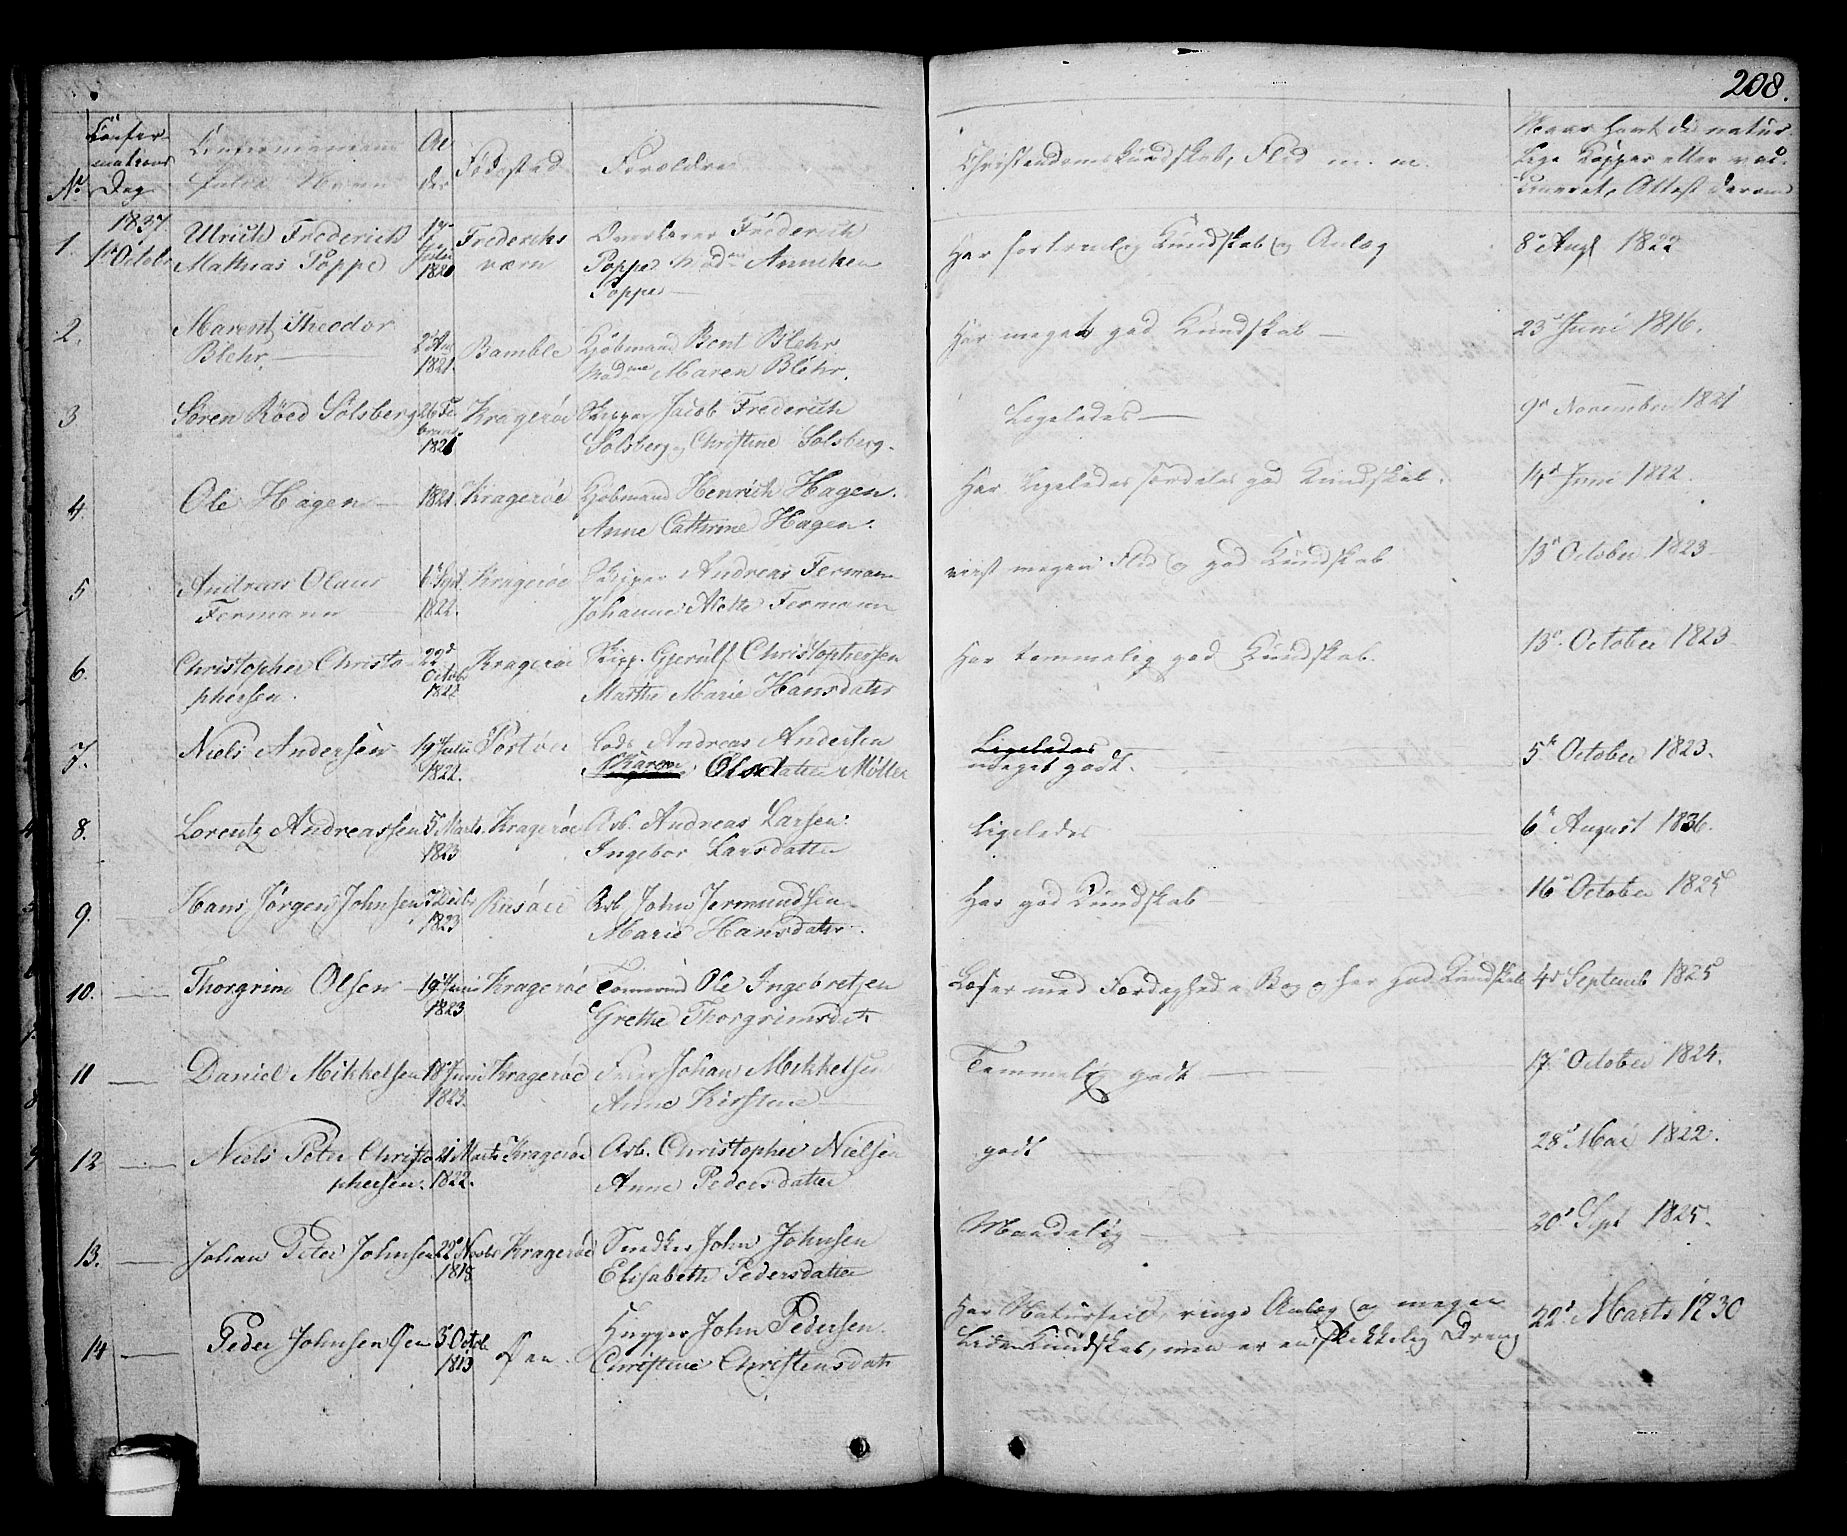 208.
No
Confir-
mations
Dag
Confirmantens
fulde Navn
Al
der
Fødested
Forældre
Christendomskundskab, Flid m. m.
Naar havt de natur-
lige Kopper eller vac-
cineret, Attest derom
1837
1. 1d Octobr
Ulrich Frederich
Mathias Poppe
1821
Frederiks
værn
Frederich
Poppe Madme Anniken
Poppe
Har fortrinlig Kundskab og Anlæg
8d Augl 1822
2.
Marentz Theodor
Blehr.
1821.
Bamble
Kjøbmand Bent Blehr
Madme Maren Blehr.
Har meget god Kundskab
23d Juni 1816.
3
Søren Röed Solsberg
26 Fe
bruar
1821
Kragerøe
Skipper Jacob Frederich
Solsberg og Christine Solsberg.
Ligeledes
9d November 1821
4.
Ole Hagen
1821.
Kragerøe
Kjøbmand Henrich Hagen.
Anne Cathrine Hagen.
Har Ligeledes særdeles god Kundskab.
14d Juni 1822.
5
Andreas Olaus
Fermann
6d Sept
1822.
Kragerøe
Skipper Andreas Fermann
Johanne Alette Fermann
viist megen Flid og god Kundskab
13d October 1823
6.
Christopher Christo
phersen.
22d
Octobr
1822
Kragerøe
Skipp. Gjerulf Christophersen
Marthe Marie Hansdatter
Har temmelig god Kundskab.
13d October 1823
7.
Niels Andersen
19d Julii
1822.
Portøe
Lods Andreas Andersen
Karen Olsdatter Møller
Ligeledes
meget godt.
5d October 1823.
8.
Lorentz Andreassen
5 Marts
1823
Kragerøe
Arb. Andreas Larsen.
Ingebor Larsdatter
Ligeledes
6d August 1836.
9.
Hans Jørgen Johnsen
1823
Arb John Jermundsen
Marie Hansdatter.
Har god Kundskab
16d October 1825
10.
Thorgrim Olsen
19d Juni
1823
Kragerøe
Tømmermd Ole Ingebretsen
Grethe Thorgrimsdatr
Læser med Færdighed i Bog og har god Kundskab
4d Septemb 1825
11
Daniel Mikkelsen
18d Juni
1823.
Kragerøe
Johan Mikkelsen
Anne Kirstine
Temmelig godt
17d October 1824.
12
Niels Peter Christo
phersen.
21 Marts
1822.
Kragerøe
Arb. Christopher Nielsen
Anne Pedersdatter
godt
28d Mai 1822.
13.
Johan Peter Johnsen
22d Novbr
1818.
Kragerøe
Snedker John Johnsen
Elisabeth Pedersdatter
Maadelig
20d Sept 1825.
14
Peder Johnsen Øen
3d Octob
1813
Øen.
Hugger John Pedersen.
Christine Christensdatr
Har Naturfeil, ringe Anlæg og megen
Liden Kundskab, men er en skikkelig Dreng
22d Marts 1830